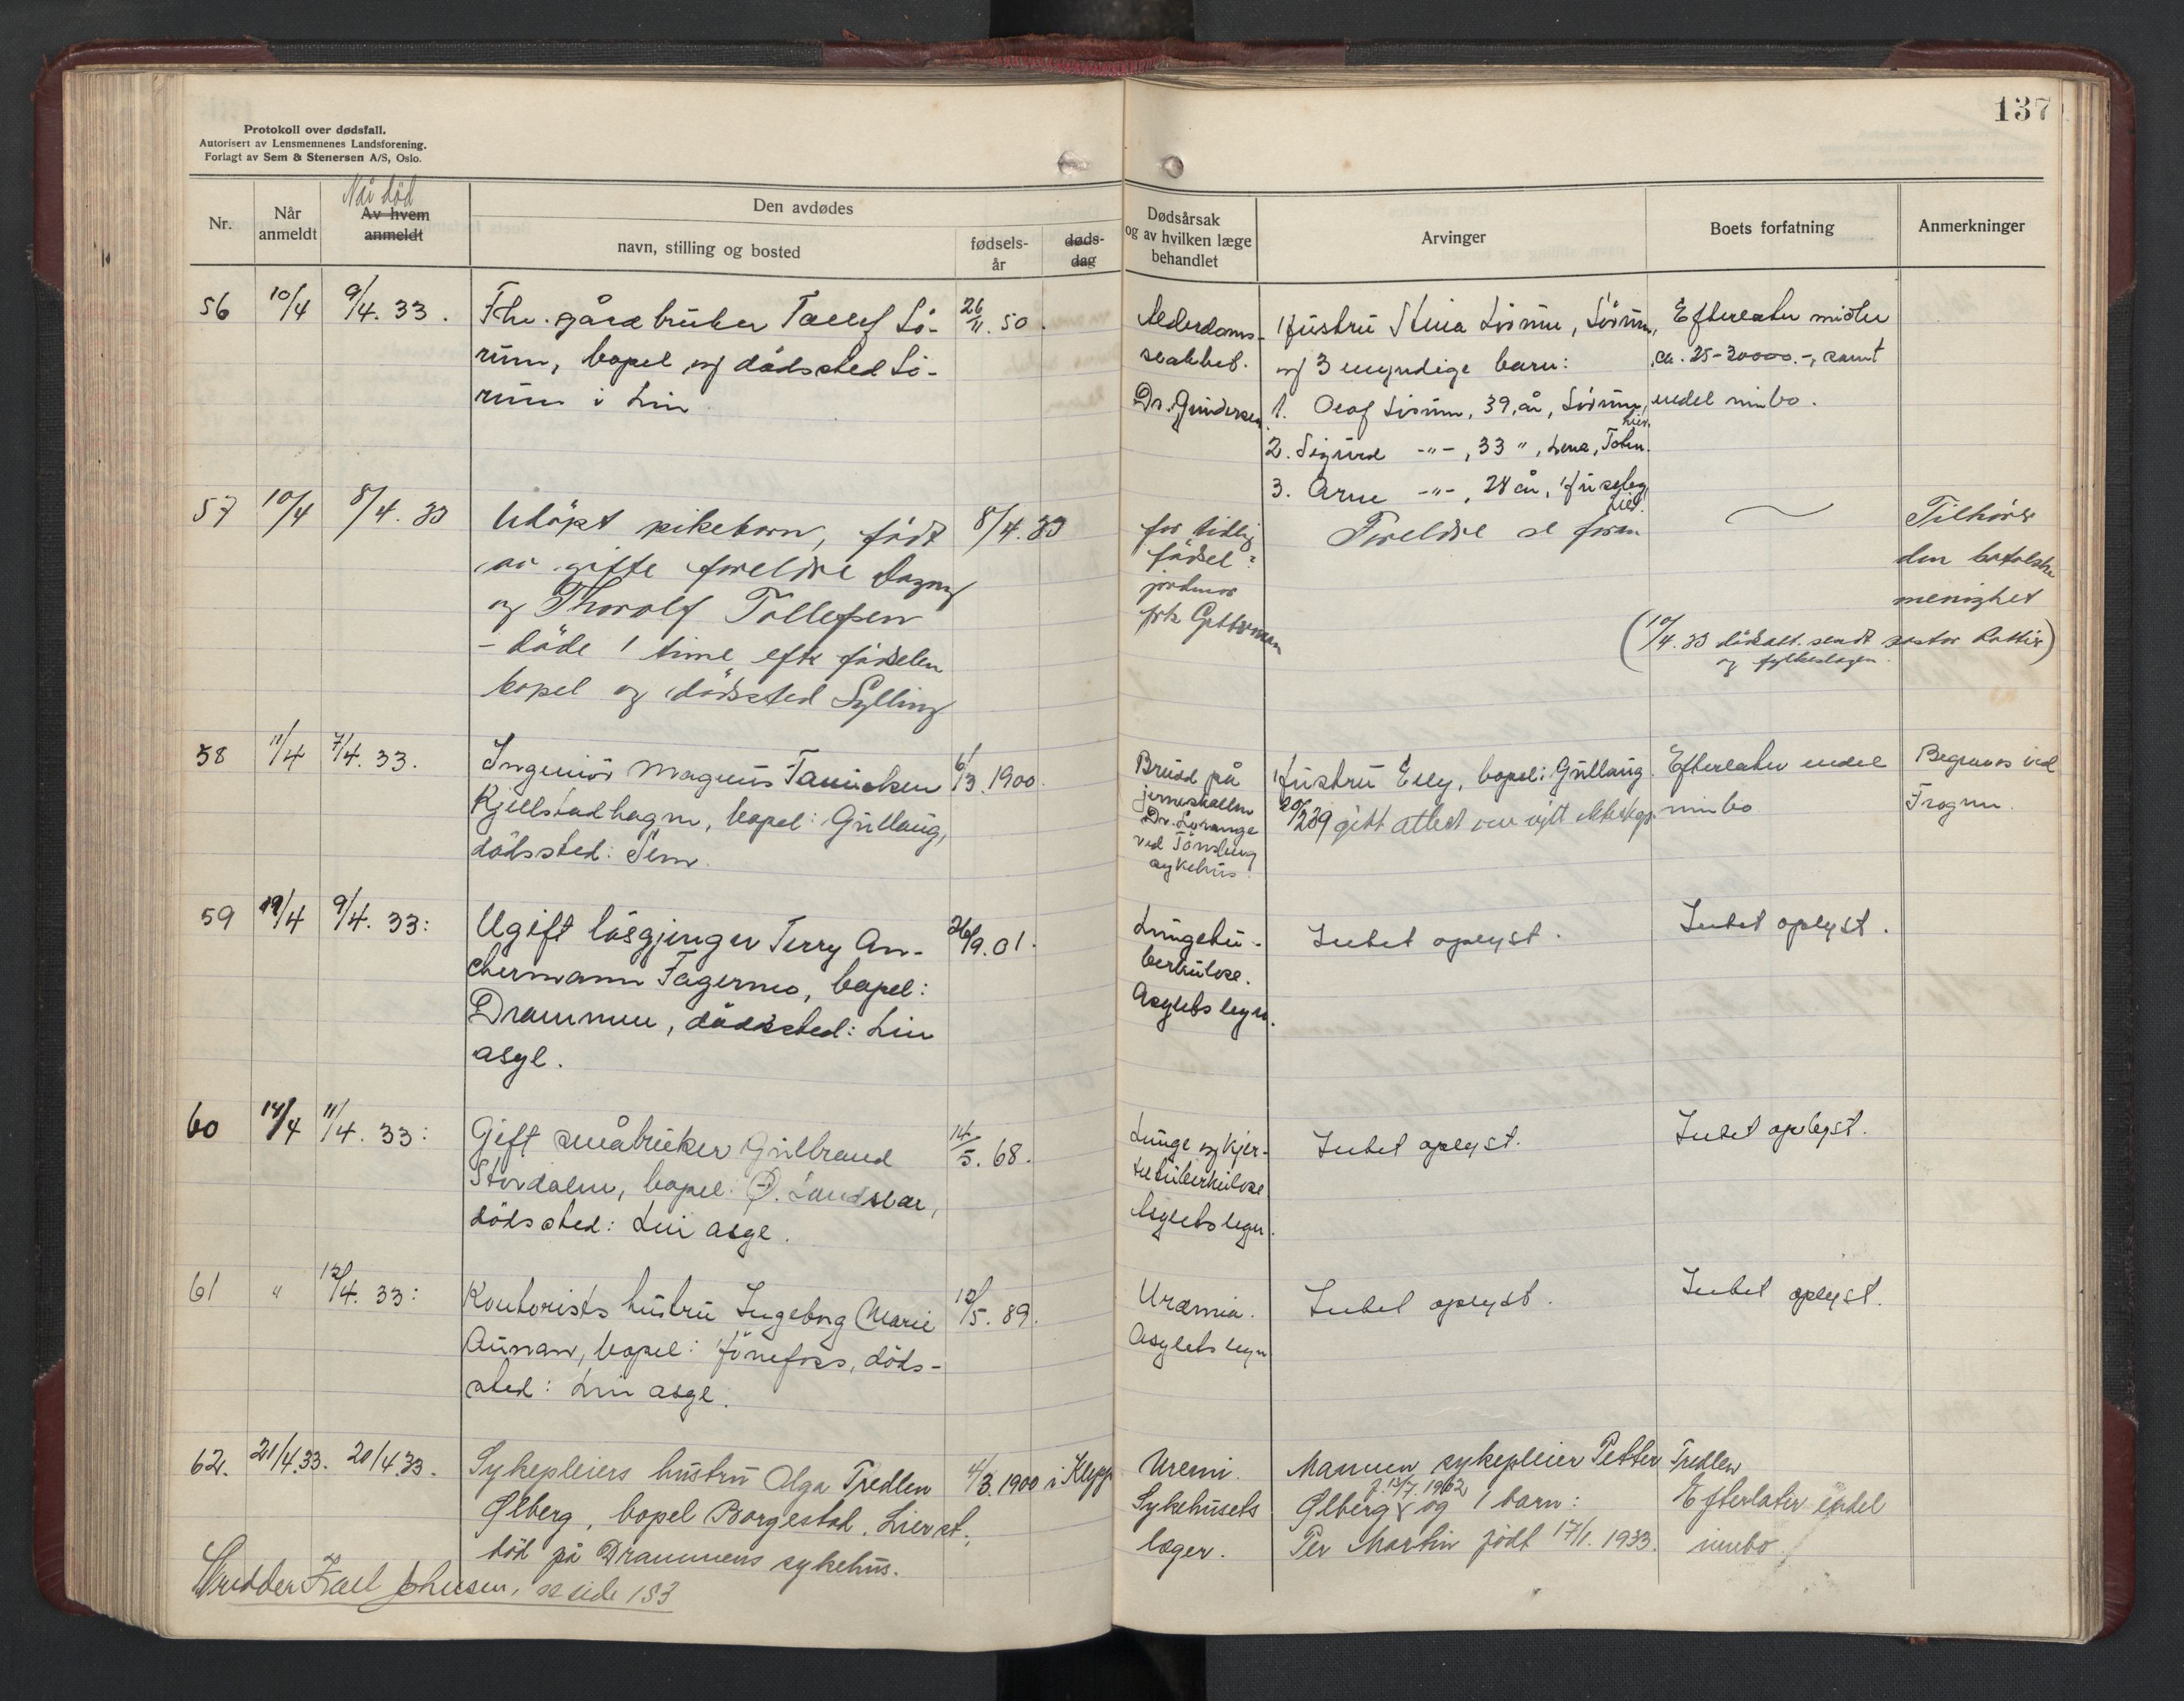 137
Protokoll over dødsfall.
Autorisert av Lensmennenes Landsforening.
Forlagt av Sem & Stenersen A/S, Oslo.
Nr.
Når anmeldt
Når død
Av hvem anmeldt
Den avdødes
navn, stilling og bosted
fødsels-
år
døds-
dag
Dødsårsak
og av hvilken læge
behandlet
Arvinger
Boets forfatning
Anmerkninger
56 10/4 9/4. 33. Fhv. gårdbruker Tollef Lö- 26/11. 50.
rum, bopel og dödssted Lö-
rum i Lier
Alderdoms-
svakhet.
Dr. Gundersen
Hustru Stina Lörum, Lörum,
og 3 myndige barn:
1. Olaf Lörum, 39 år, Lörum,
Lier.
2. Sigurd -"-, 33 ", Lena, Toten.
3. Arne -"-, 28 år,
Lier.
Efterlater midler
ca. 25-30000.-, samt
endel innbo.
57 10/4 8/4. 33 Udöpt pikebarn, födt 8/4. 33
av gifte foreldre Dagny
og Thorolf Tollefsen
- döde 1 time efter födselen
bopel og dödssted Sylling
for tidlig
födsel:
jordmor
frk Getterman
Foreldre se foran
Tilhörer
den katolske
menighet
(10/4. 33 dödsatt. sendt pastor
og fylkeslegen.
58 11/4 7/4. 33. Ingeniör Magnus Fannicken 6/3. 1900.
Kjellstadhagen, bopel: Gullaug,
dödssted: Sem.
Brudd på
jerneskallen
Dr. Lorange
ved Tönsberg
sykehus.
Hustru Elly, bopel: Gullaug.
20/2 39 gitt attest om nytt ekteskap.
Efterlater endel
innbo
Begraves ved
Frogner.
59 19/4 9/4. 33: Ugift lösgjenger Terry An- 26/9. 01.
chermann Fagermo, bopel:
Drammen, dödssted: Lier
asyl.
Lungetu-
berkulose.
Asylets legen.
Intet oplyst.
Intet oplyst.
60 19/4 11/4. 33: Gift småbruker Gulbrand 14/5. 68.
Stordalen, bopel: Ö. Landsvær,
dödssted: Lier asyl.
Lunge og kjer-
teltuberkulose
Asylets legen.
Intet oplyst.
Intet oplyst.
61 " 12/4. 33: Kontorists hustru Ingeborg Marie 12/5. 89.
Aunan, bopel: Hönefoss, döds-
sted: Lier asyl.
Uræmia.
Asylets legen
Intet oplyst.
Intet oplyst.
62. 21/4.33. 20/4.33. Sykepleiers hustru Olga Tredlen 4/3. 1900 i Klepp
Ølberg, bopel Borgestad, Lier st.,
död på Drammens sykehus.
Uremi.
Sykehusets
læger.
Mannen sykepleier Petter Tredlen
f. 13/7. 1902
Ølberg og 1 barn:
Per Martin födt 17/1. 1933.
Efterlater endel
innbo.
Skredder Karl Johnsen, se side 183